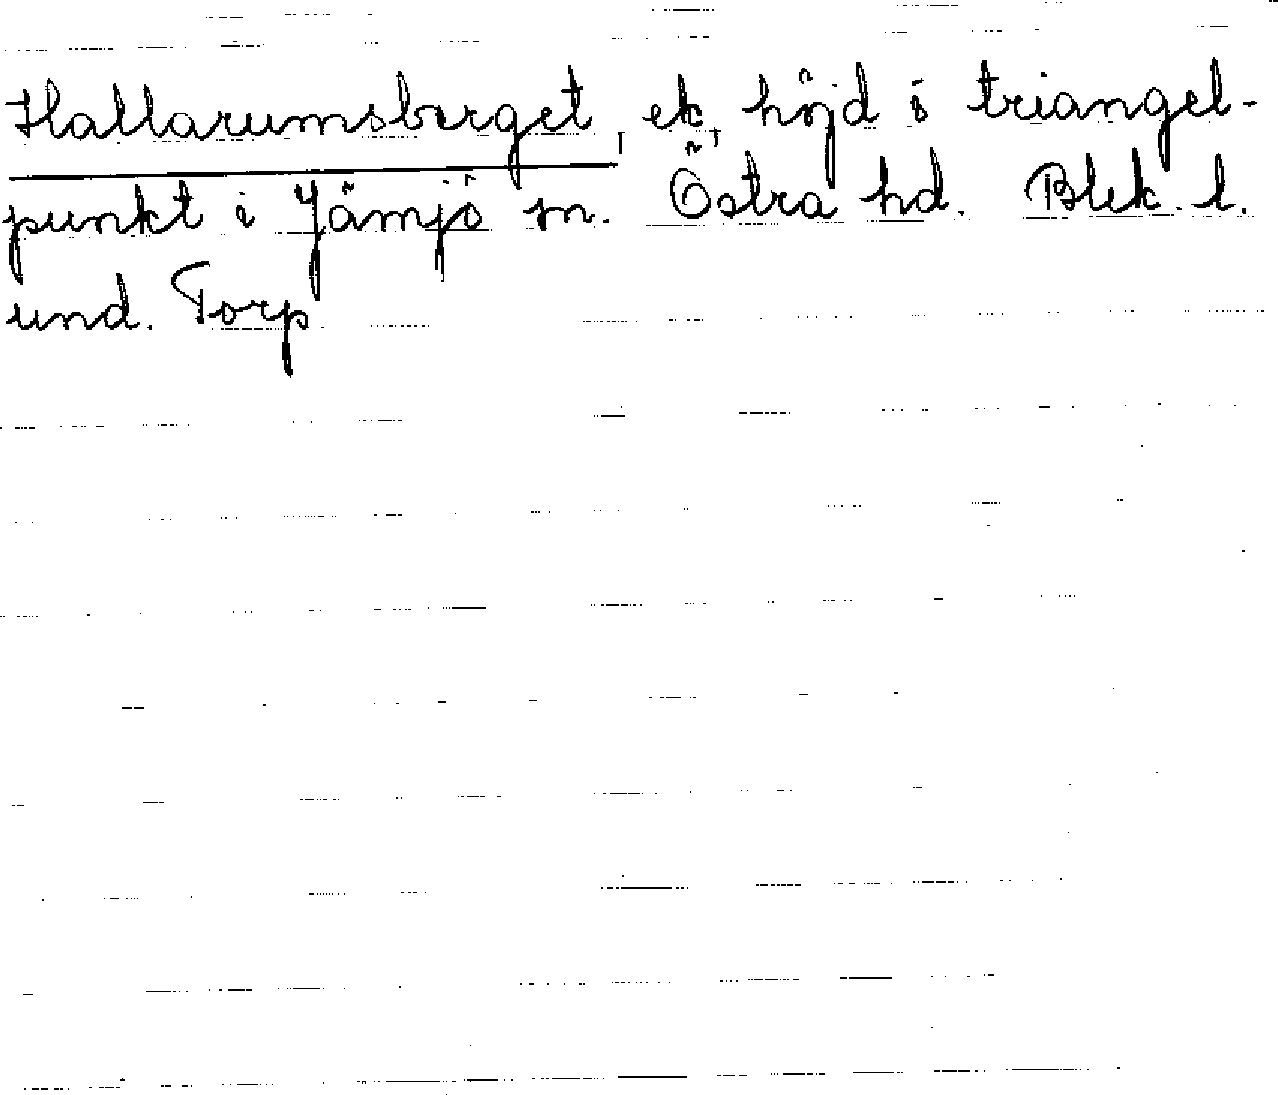 Hallarumsberget, ek, höjd i triangel-
punkt i Jämjö sn. Östra hd. Blek. l.
und. Torp